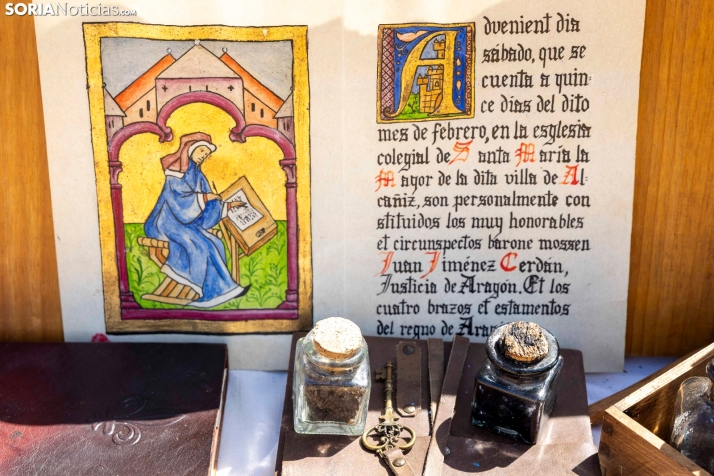 SORIANoticias.com
Advenient dia
sábado, que se
cuenta a quin-
ce dias del dito
mes de febrero, en la esglesia
colegial de Santa María la
Mayor de la dita villa de Al-
cañiz, son personalmente con
stituidos los muy honorables
et circunspectos barone mossen
Juan Jiménez Cerdán,
Justicia de Aragón. Et los
cuatro brazos et estamentos
del regno de Ara